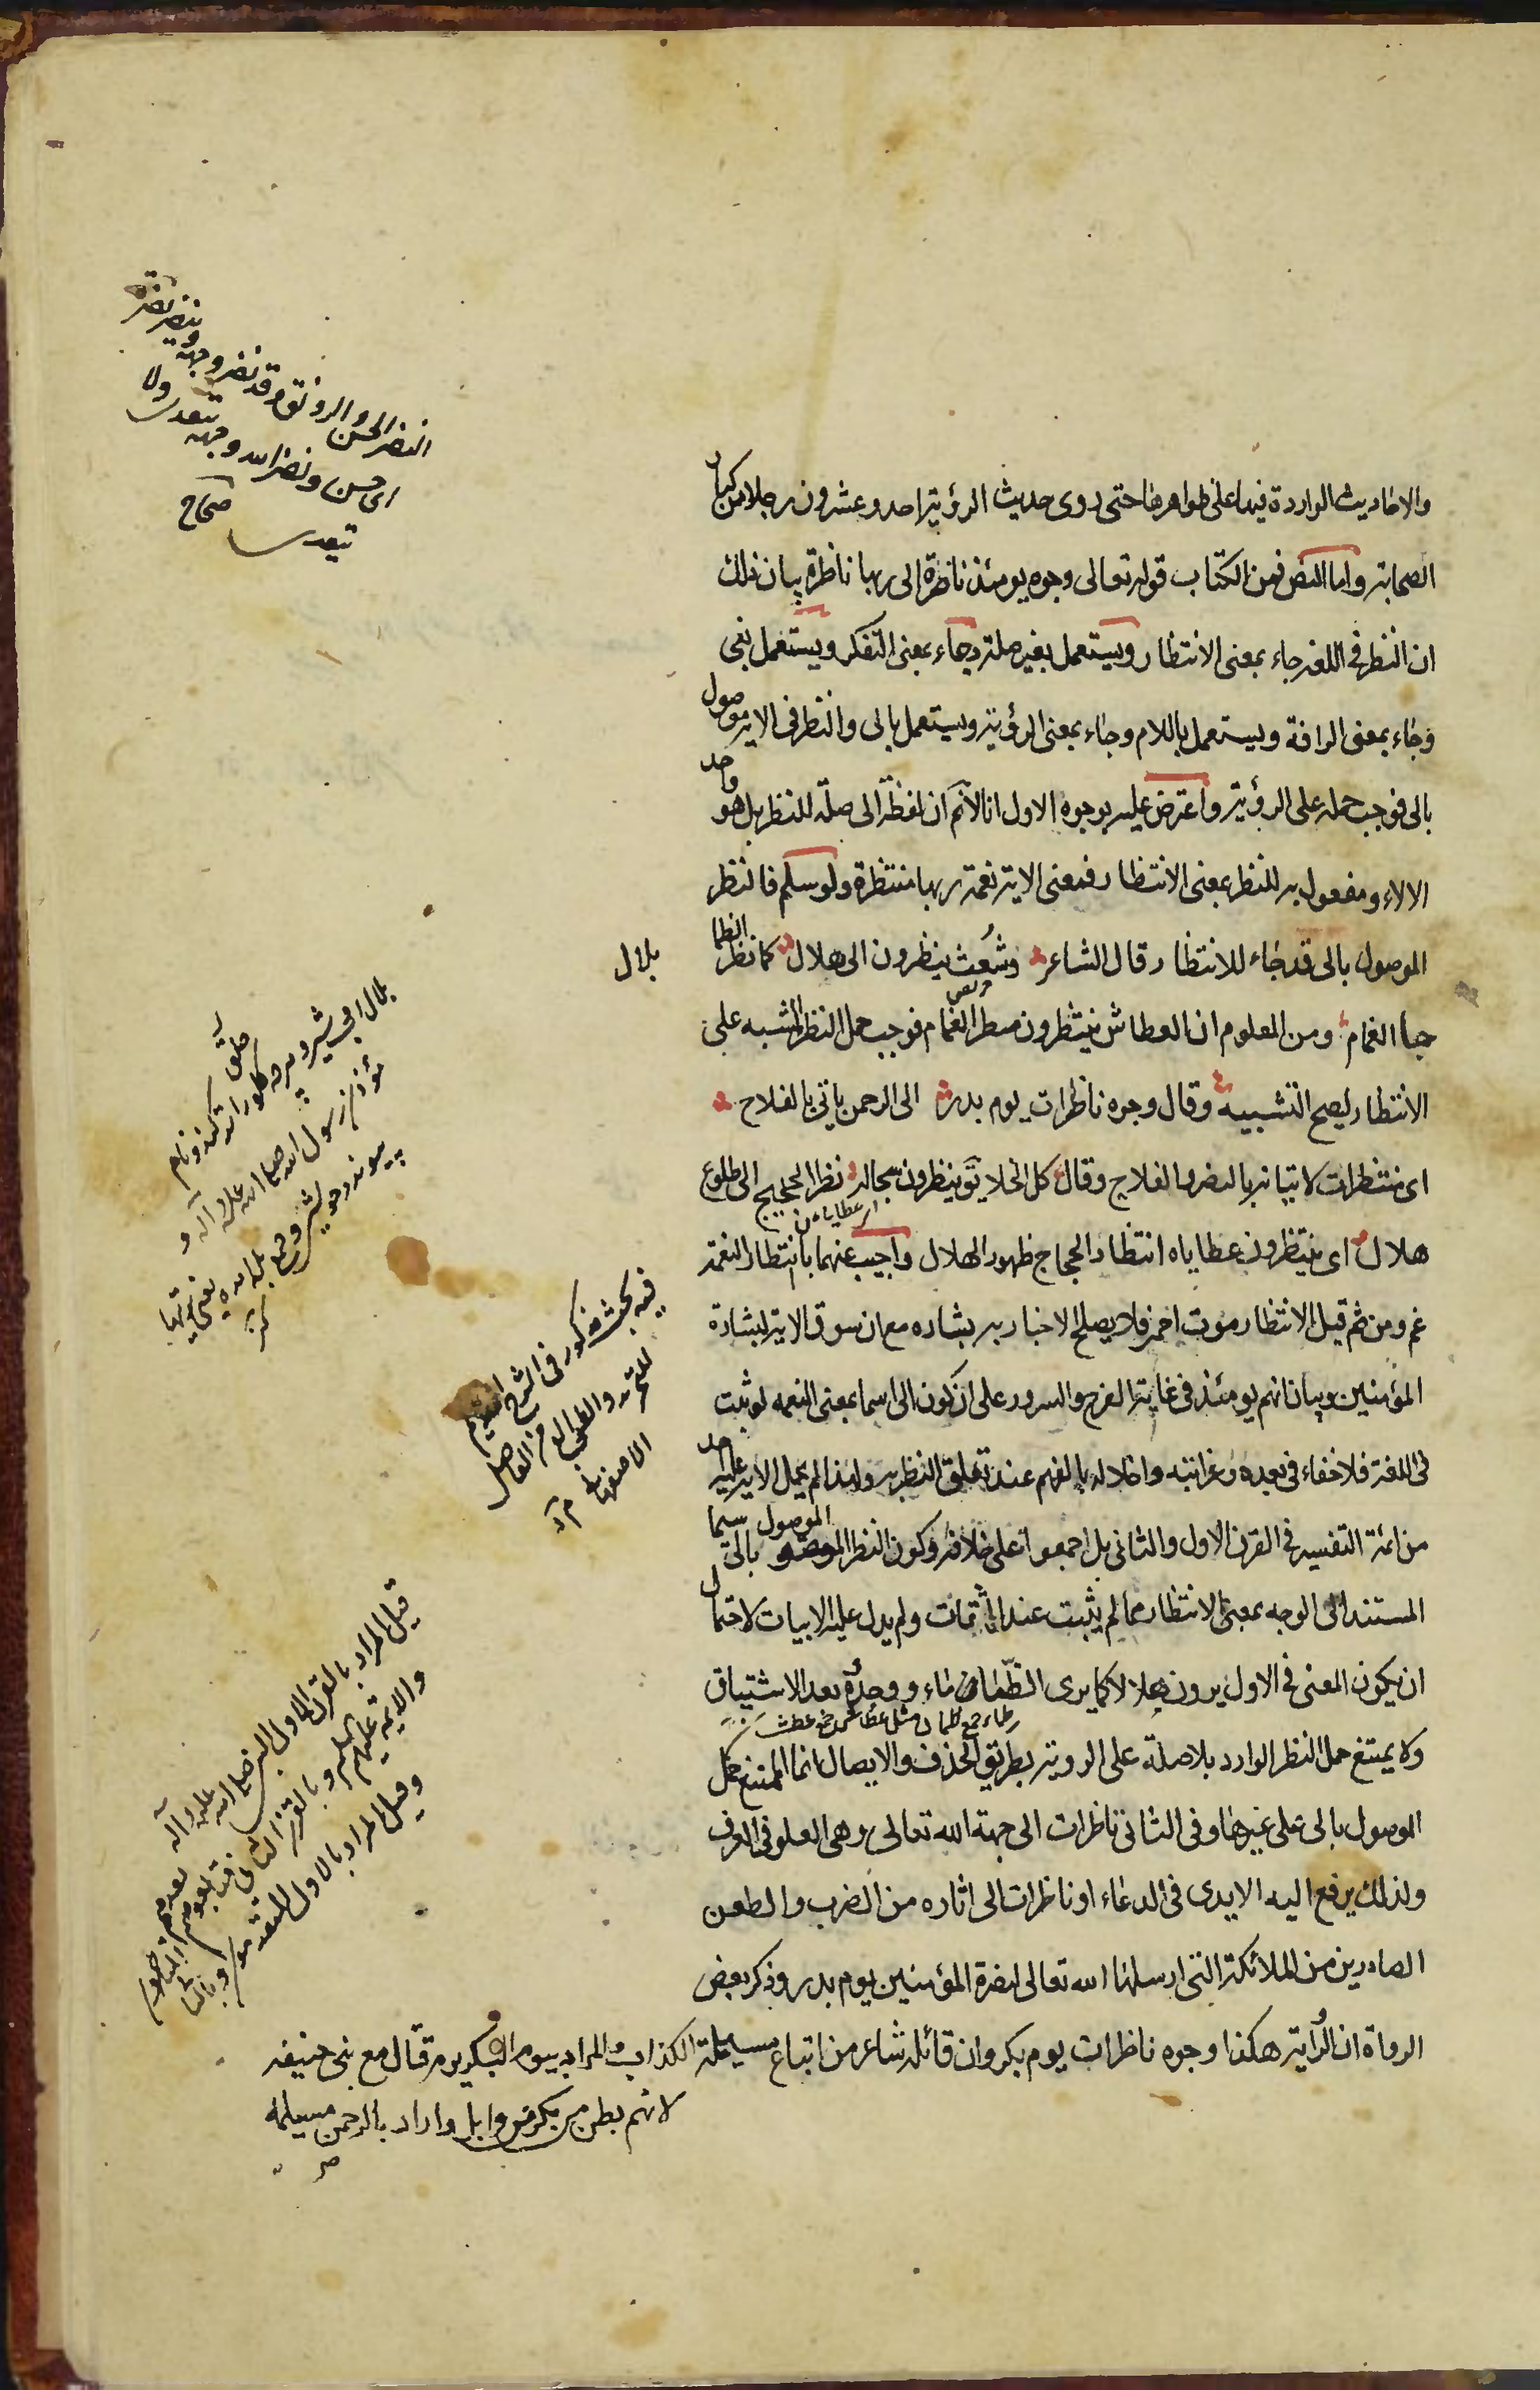 والاحاديث الواردة فيها على ظواهرها حتى روى حديث الرؤية احد وعشرون رجلا من كبار
الصحابة واما النص فمن الكتاب قوله تعالى وجوه يومئذ ناضرة الى ربها ناظرة بيان ذلك
ان النظر فى اللغة جاء بمعنى الانتظار ويستعمل بغير صلة وجاء بمعنى التفكر ويستعمل بفى
وجاء بمعنى الرافة ويستعمل باللام وجاء بمعنى الرؤية ويستعمل بالى والنظر فى الاية موصول
بالى فوجب حمله على الرؤية واعترض عليه بوجوه الاول انا لانم ان لفظة الى صلة للنظر بل هو واحد
الالاء ومفعول به للنظر بمعنى الانتظار فمعنى الاية نعمة ربها منتظرة ولو سلم فالنظر
الموصول بالى قد جاء للانتظار قال الشاعر وشعث ينظرون الى هلال كما نظر الظما
بلال
حيا الغمام ومن المعلوم ان العطاش ينتظرون مطر الغمام فوجب حمل النظر المشبه على
الانتظار ليصح التشبيه وقال وجوه ناظرات يوم بدر الى الرحمن ياتى بالفلاح
اى منتظرات لاتيانه بالنصر والفلاح وقال كل الخلايق ينظرون سجاله نظر الحجيج الى طلوع
هلال اى ينتظرون عطاياه انتظار الحجاج ظهور الهلال واجيب عنهما بان انتظار النعمة
غم ومن ثم قيل الانتظار موت احمر فلا يصلح الاخبار به بشاره مع ان سوق الاية لبشارة
المؤمنين وبيان انهم يومئذ فى غاية الفرح والسرور على ان كون الى اسما بمعنى النعمه لو ثبت
فى اللغة فلا خفاء فى بعده وغرابته واخلاله بالفهم عند تعلق النظر به ولهذا لم يحمل الاية عليه احد
من ائمة التفسير فى القرن الاول والثانى بل اجمعوا على خلافه وكون النظر الموصول بالى سيما
المستند الى الوجه بمعنى الانتظار مما لم يثبت عند الثقات ولم يدل عليه الابيات لاحتمال
ان يكون المعنى فى الاول يرون هلالا كما يرى الظمآن ماء ووجده بعد الاشتياق
ولا يمتنع حمل النظر الوارد بلا صلة على الروية بطريق الحذف والايصال انما الممتنع حمل
الموصول بالى على غيرها وفى الثانى ناظرات الى جهة الله تعالى وهى العلو فى العرف
ولذلك يرفع اليه الايدى فى الدعاء او ناظرات الى اثاره من الضرب والطعن
الصادرين من الملائكة التى ارسلها الله تعالى لنصرة المؤمنين يوم بدر وذكر بعض
الرواة ان الرواية هكذا وجوه ناظرات يوم بكر وان قائله شاعر من اتباع مسيلمة الكذاب والمراد بيوم البكر يوم قتال مع بنى حنيفه
لانهم بطن من بكر من وايل واراد بالرحمن مسيلمه
النضر الحسن والرونق وقد نضر وجهه
وينضر نضرة
اى حسن ونضر الله وجهه يتعدى ولا
يتعدى صحاح
فيه بحث مذكور فى الشرح
قيل المراد بالقرن الاول النبى صلى الله عليه وآله
وقيل المراد بالاول المتقدمون